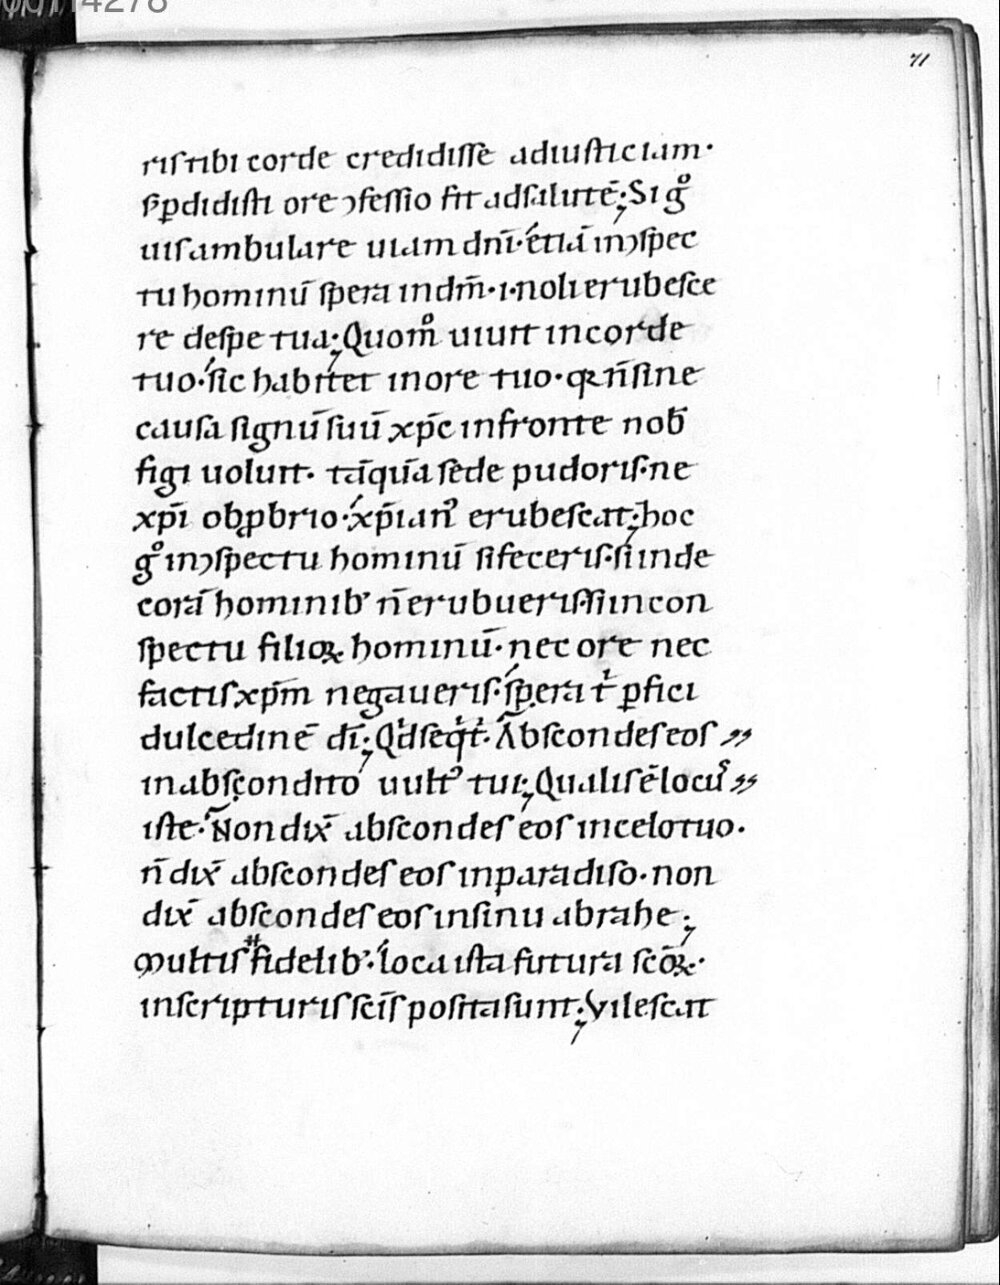 71
riſ tibi corde credidiſſe adiuſticiam·
ſꝑdidiſti ore ꝯfeſſio fit adſalutē; Si gͦ
uiſ ambulare uiam dnī· etiā inꝯſpec
tu hominū ſpera indn̄o· i· noli erubeſce
re deſpe tua; Quomͦ uiuit incorde
tuo· ſic habitet inore tuo· qꝛ n̄ ſine
cauſa ſignū ſuū xp̄c infronte nob̄
figi uoluit· tāquā ſede pudoriſ· ne
xp̄i obꝓbrio· xp̄ian᾽ erubeſcat; hoc
gͦ inꝯſpectu hominū ſi feceriſ· ſi inde
corā hominib᾽ n̄ erubueriſ· ſi incon
ſpectu filioꝝ hominū· nec ore nec
factiſ xp̄m negaueriſ· ſpera t̕ ꝑfici
dulcedinē dī; Qd̕ ſeqt̕· Abſcondeſ eoſ
inabſcondito uult᾽ tui; Qualiſ ē locuſ
iſte· Non dix̄ abſcondeſ eoſ incelo tuo·
n̄ dix̄ abſcondeſ eoſ inparadiſo· non
dix̄ abſcondeſ eoſ inſinu abrahe;
Multiſ fidelib᾽· loca iſta futura ſcōꝝ·
inſcripturiſ ſcīſ poſita ſunt; Vileſcat